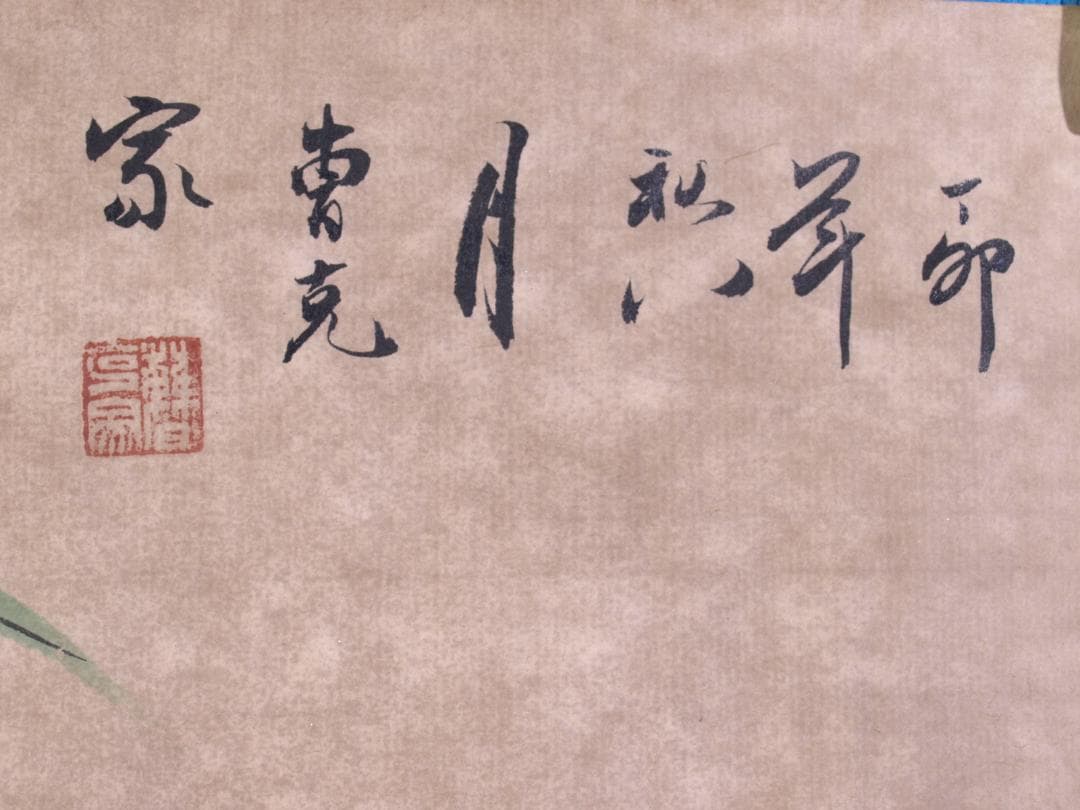 丁卯
年
秋八
月
曹克
家